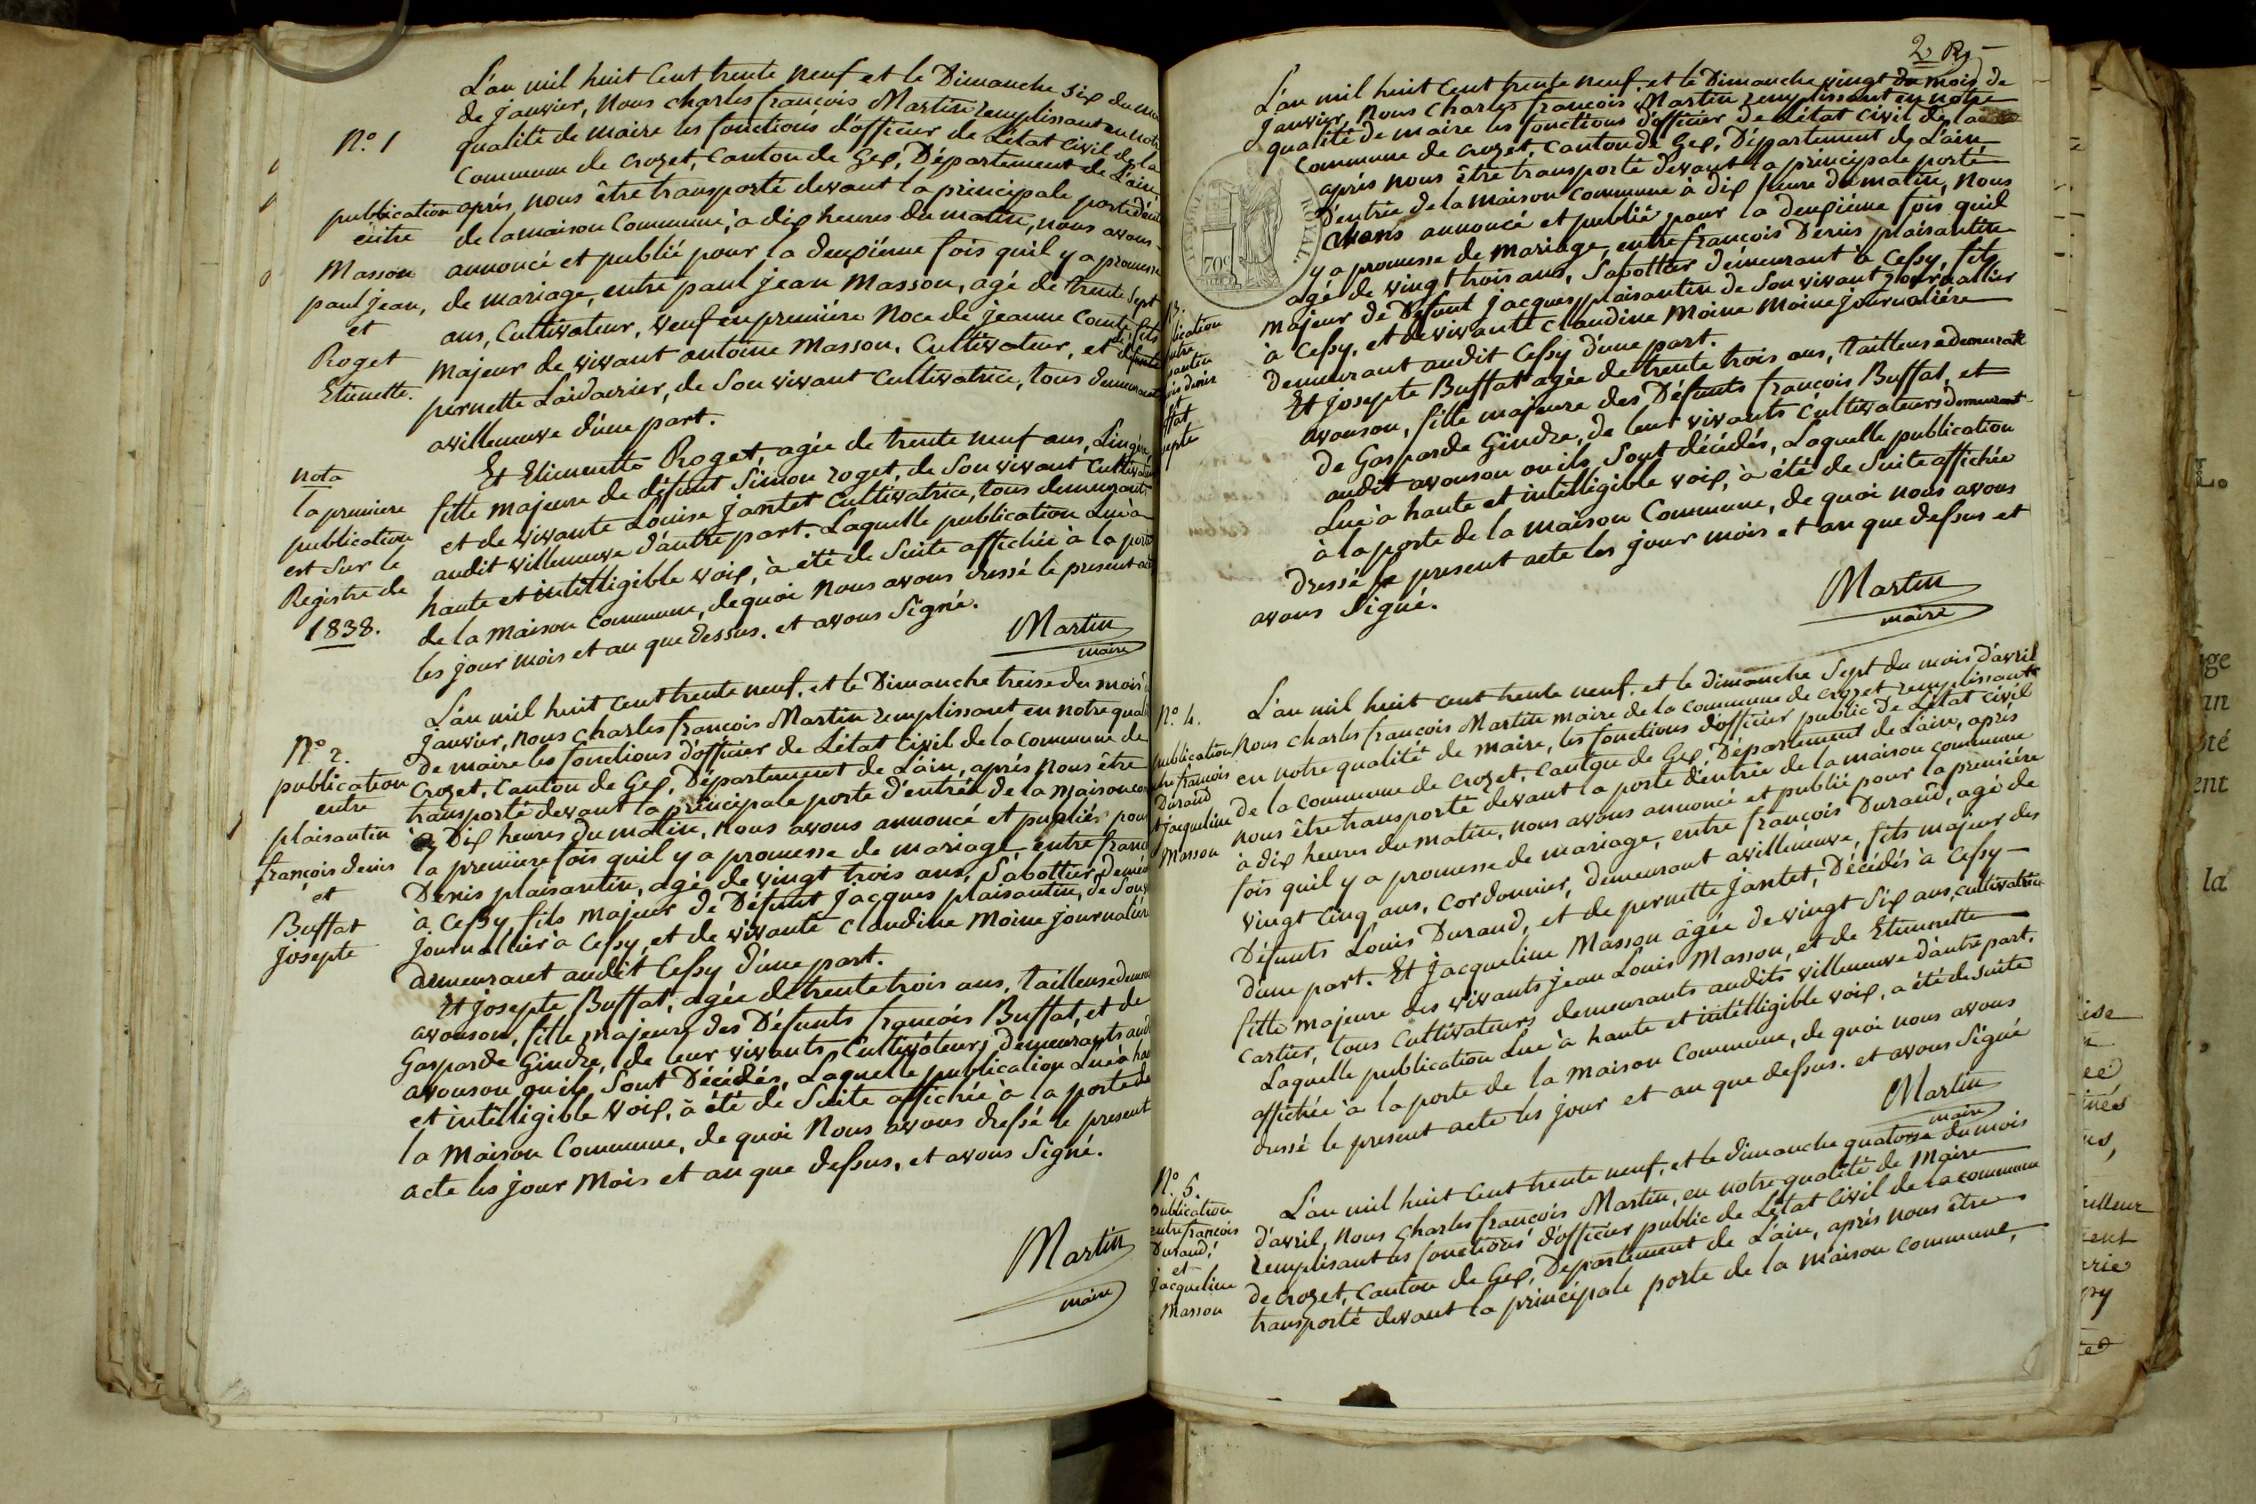 N.o 1
publication
entre
Masson
paul jean,
et
Roget
Etiennette.
nota
la premiere
publication
est sur le
Registre de
1838.
L'an mil huit Cent trente neuf et le Dimanche six du
de janvier, Nous charles françois Martin remplissant en notre
qualité de maire les fonctions d'officier de L'état Civil de la
Commune de crozet, Canton de Gex, Département de L'ain
après nous être transporté devant la principale porte
de la maison Commune, à dix heures du matin, nous avons
annoncé et publié pour la deuxiéme fois quil y a promesse
de mariage, entre paul jean Masson, agé de trente sept
ans, Cultivateur, veuf en premiére Noce de jeanne Comte, fils
Majeur de vivant antoine Masson, Cultivateur, et de défunte
pernette de Son vivant Cultivatrice, tous demeurant
avilleneuve d'une part.
Et Etiennette Roget, agée de trente neuf ans,
fille majeure de défunt Simon roget, de Son vivant
et de vivante Louise jantet Cultivatrice, tous demeurant
audit villeneuve d'autre part. Laquelle publication Lue à
haute et intelligible voix, à été de Suite affichée à la porte
de la Maison Commune, dequoi Nous avons dressé le present
les jour mois et an que dessus. et avons Signé.
Martin
maire
N.o 2.
publication
entre
plaisantin
françois denis
et
Buffat
josepte
L'an mil huit Cent trente neuf, et le Dimanche treise du mois
janvier, Nous charles françois Martin remplissant en notre
de maire les fonctions d'officier de L'état Civil de la Commune de
Crozet, Canton de Gex, Département de L'ain, après Nous être
transporté devant la principale porte d'entrée de la maison
à Dix heures du matin, Nous avons annoncé et publiés pour
la premiére fois quil y a promesse de mariage entre
Denis plaisantin, agé de vingt trois ans, Sabottier,
à Cessy, fils majeur de Défunt jacques plaisantin, de
journallier à Cessy, et de vivante Claudine Moine
demeurant audit Cessy d'une part.
Et josepte Buffat, agée de trente trois ans, tailleuse
avouson, fille majeure des Défunts françois Buffat, et de
Gasparde Gindre, de leur vivants Cultivateurs demeurants
avouson ou ils Sont Décédés, Laquelle publication Lue à
et intelligible voix, à été de Suite affichée à la porte de
la Maison Commune, de quoi Nous avons dressé le present
acte les jour Mois et an que dessus, et avons Signé.
Martin
maire
2
L'an mil huit Cent trente neuf, et le Dimanche vingt du mois de
janvier, Nous Charles françois Martin remplissant en notre
qualité de maire les fonctions d'officier de L'état civil de la
Commune de crozet, Canton de Gex, Département de L'ain,
après nous être transporté devant la principale porte
D'entrée de la maison Commune à dix heure du matin, Nous
avons annoncé et publié pour la deuxiéme fois quil
y a promesse de mariage, entre françois Denis plaisantin
agé de vingt trois ans, Sabottier demeurant à Cessy, fils
majeur de Défunt jacques plaisantin de Son vivant journallier
à Cessy, et de vivante Claudine Moine Moine journaliére
demeurant audit Cessy d'une part.
Et josepte Buffat agée de trente trois ans, tailleuse demeurant
avouson, fille majeure des Défunts françois Buffat, et
de Gasparde Gindre, de leur vivants Cultivateurs demeurant
audit avouson ou ils Sont décédés, Laquelle publication
Lue à haute et intelligible voix, à été de Suite affichée
à la porte de la maison Commune, de quoi nous avons
dressé le present acte les jour mois et an que dessus et
avons Signé.
Martin
maire
N.o 4.
publication
françois
Durand
jacqueline
Masson
L'an mil huit cent trente neuf, et le dimanche Sept du mois d'avril
Nous charles françois Martin maire de la commune de crozet, remplissant
en notre qualité de maire, les fonctions d'officier public de L'état civil
de la commune de crozet, canton de Gex, Département de L'ain, après
nous être transporté devant la porte d'entrée de la maison commune
à dix heures du matin, nous avons annoncé et publié pour la premiére
fois quil y a promesse de mariage, entre françois Durand, agé de
vingt Cinq ans, cordonnier, demeurant avilleneuve, fils majeur des
Défunts Louis Durand, et de pernette jantet, Décédés à Cessy
d'une part. Et jacqueline Masson âgée de vingt Six ans, cultivatrice
fille majeure des vivants jean Louis Masson, et de Etiennette
cartier, tous Cultivateurs demeurants audits villeneuve d'autre part.
Laquelle publication Lue à haute et intelligible voix, a été de suite
affichée à la porte de la maison Commune, de quoi nous avons
dressé le present acte les jour et an que dessus. et avons Signé
Martin
maire
N.o 5.
publication
entre françois
Durand,
et
jacqueline
Masson
L'an mil huit Cent trente neuf, et le dimanche quatorze du mois
d'avril, Nous Charles françois Martin, en notre qualité de Maire
remplisant les fonctions d'officier public de L'état Civil de la commune
de crozet, canton de Gex, Département de L'ain, après nous être
transporté devant la principale porte de la maison commune,